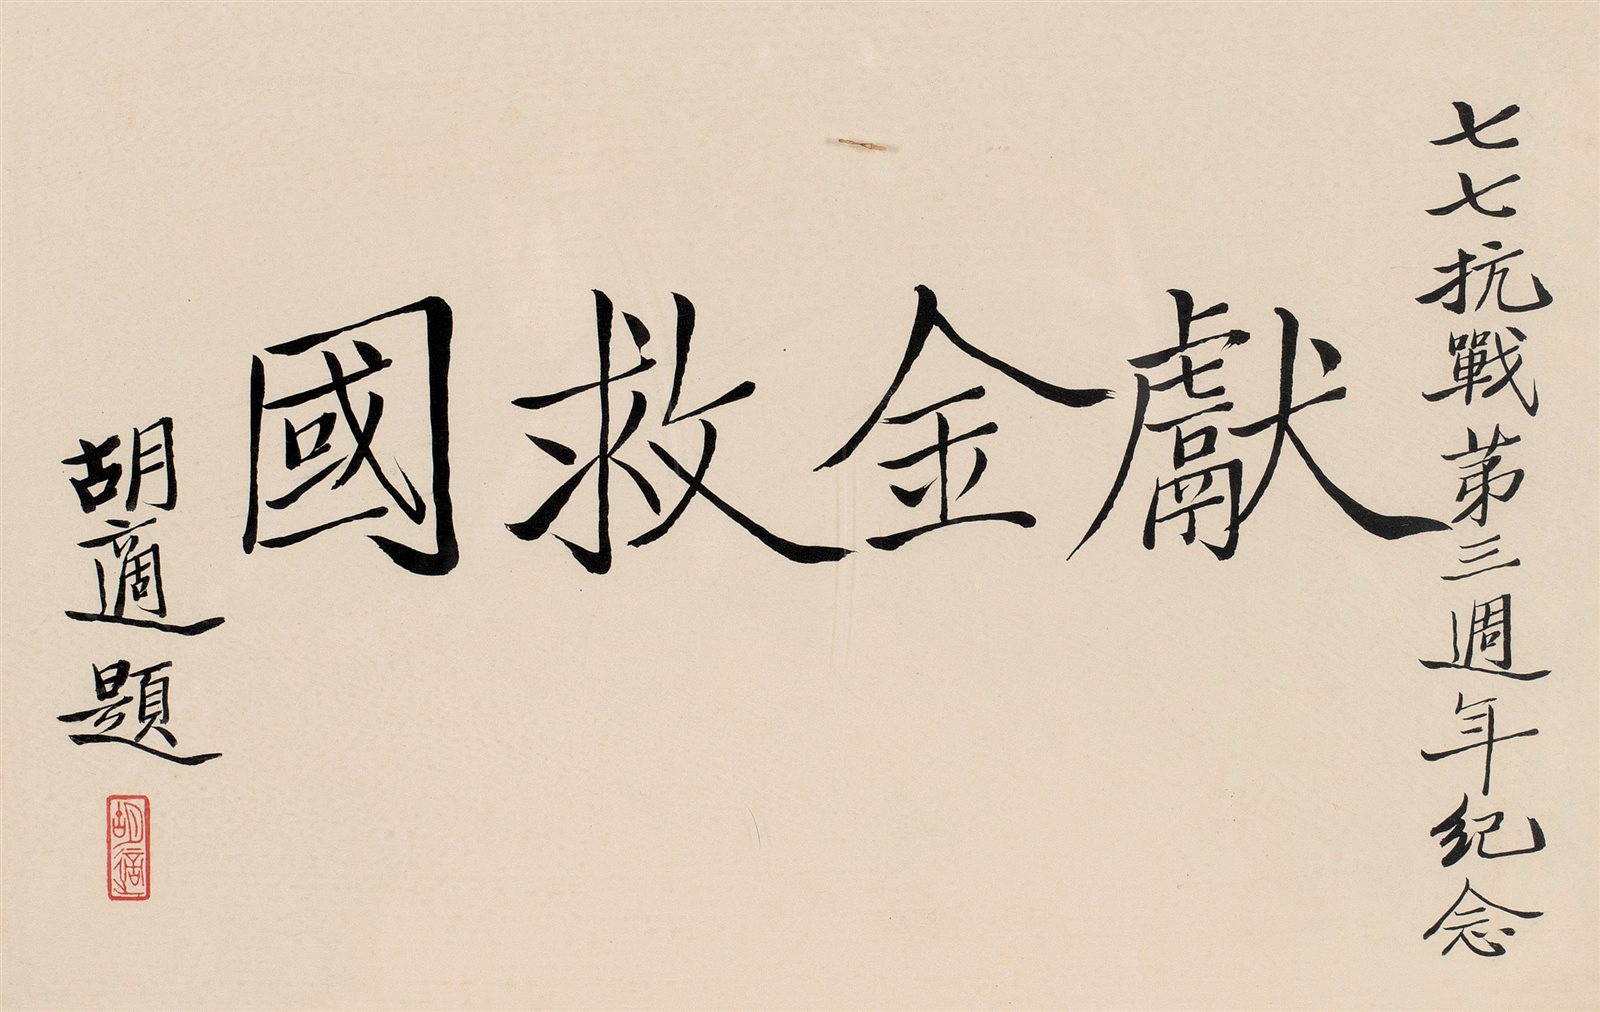 七七抗戰苐三週年紀念
獻金救國
胡適題
胡適